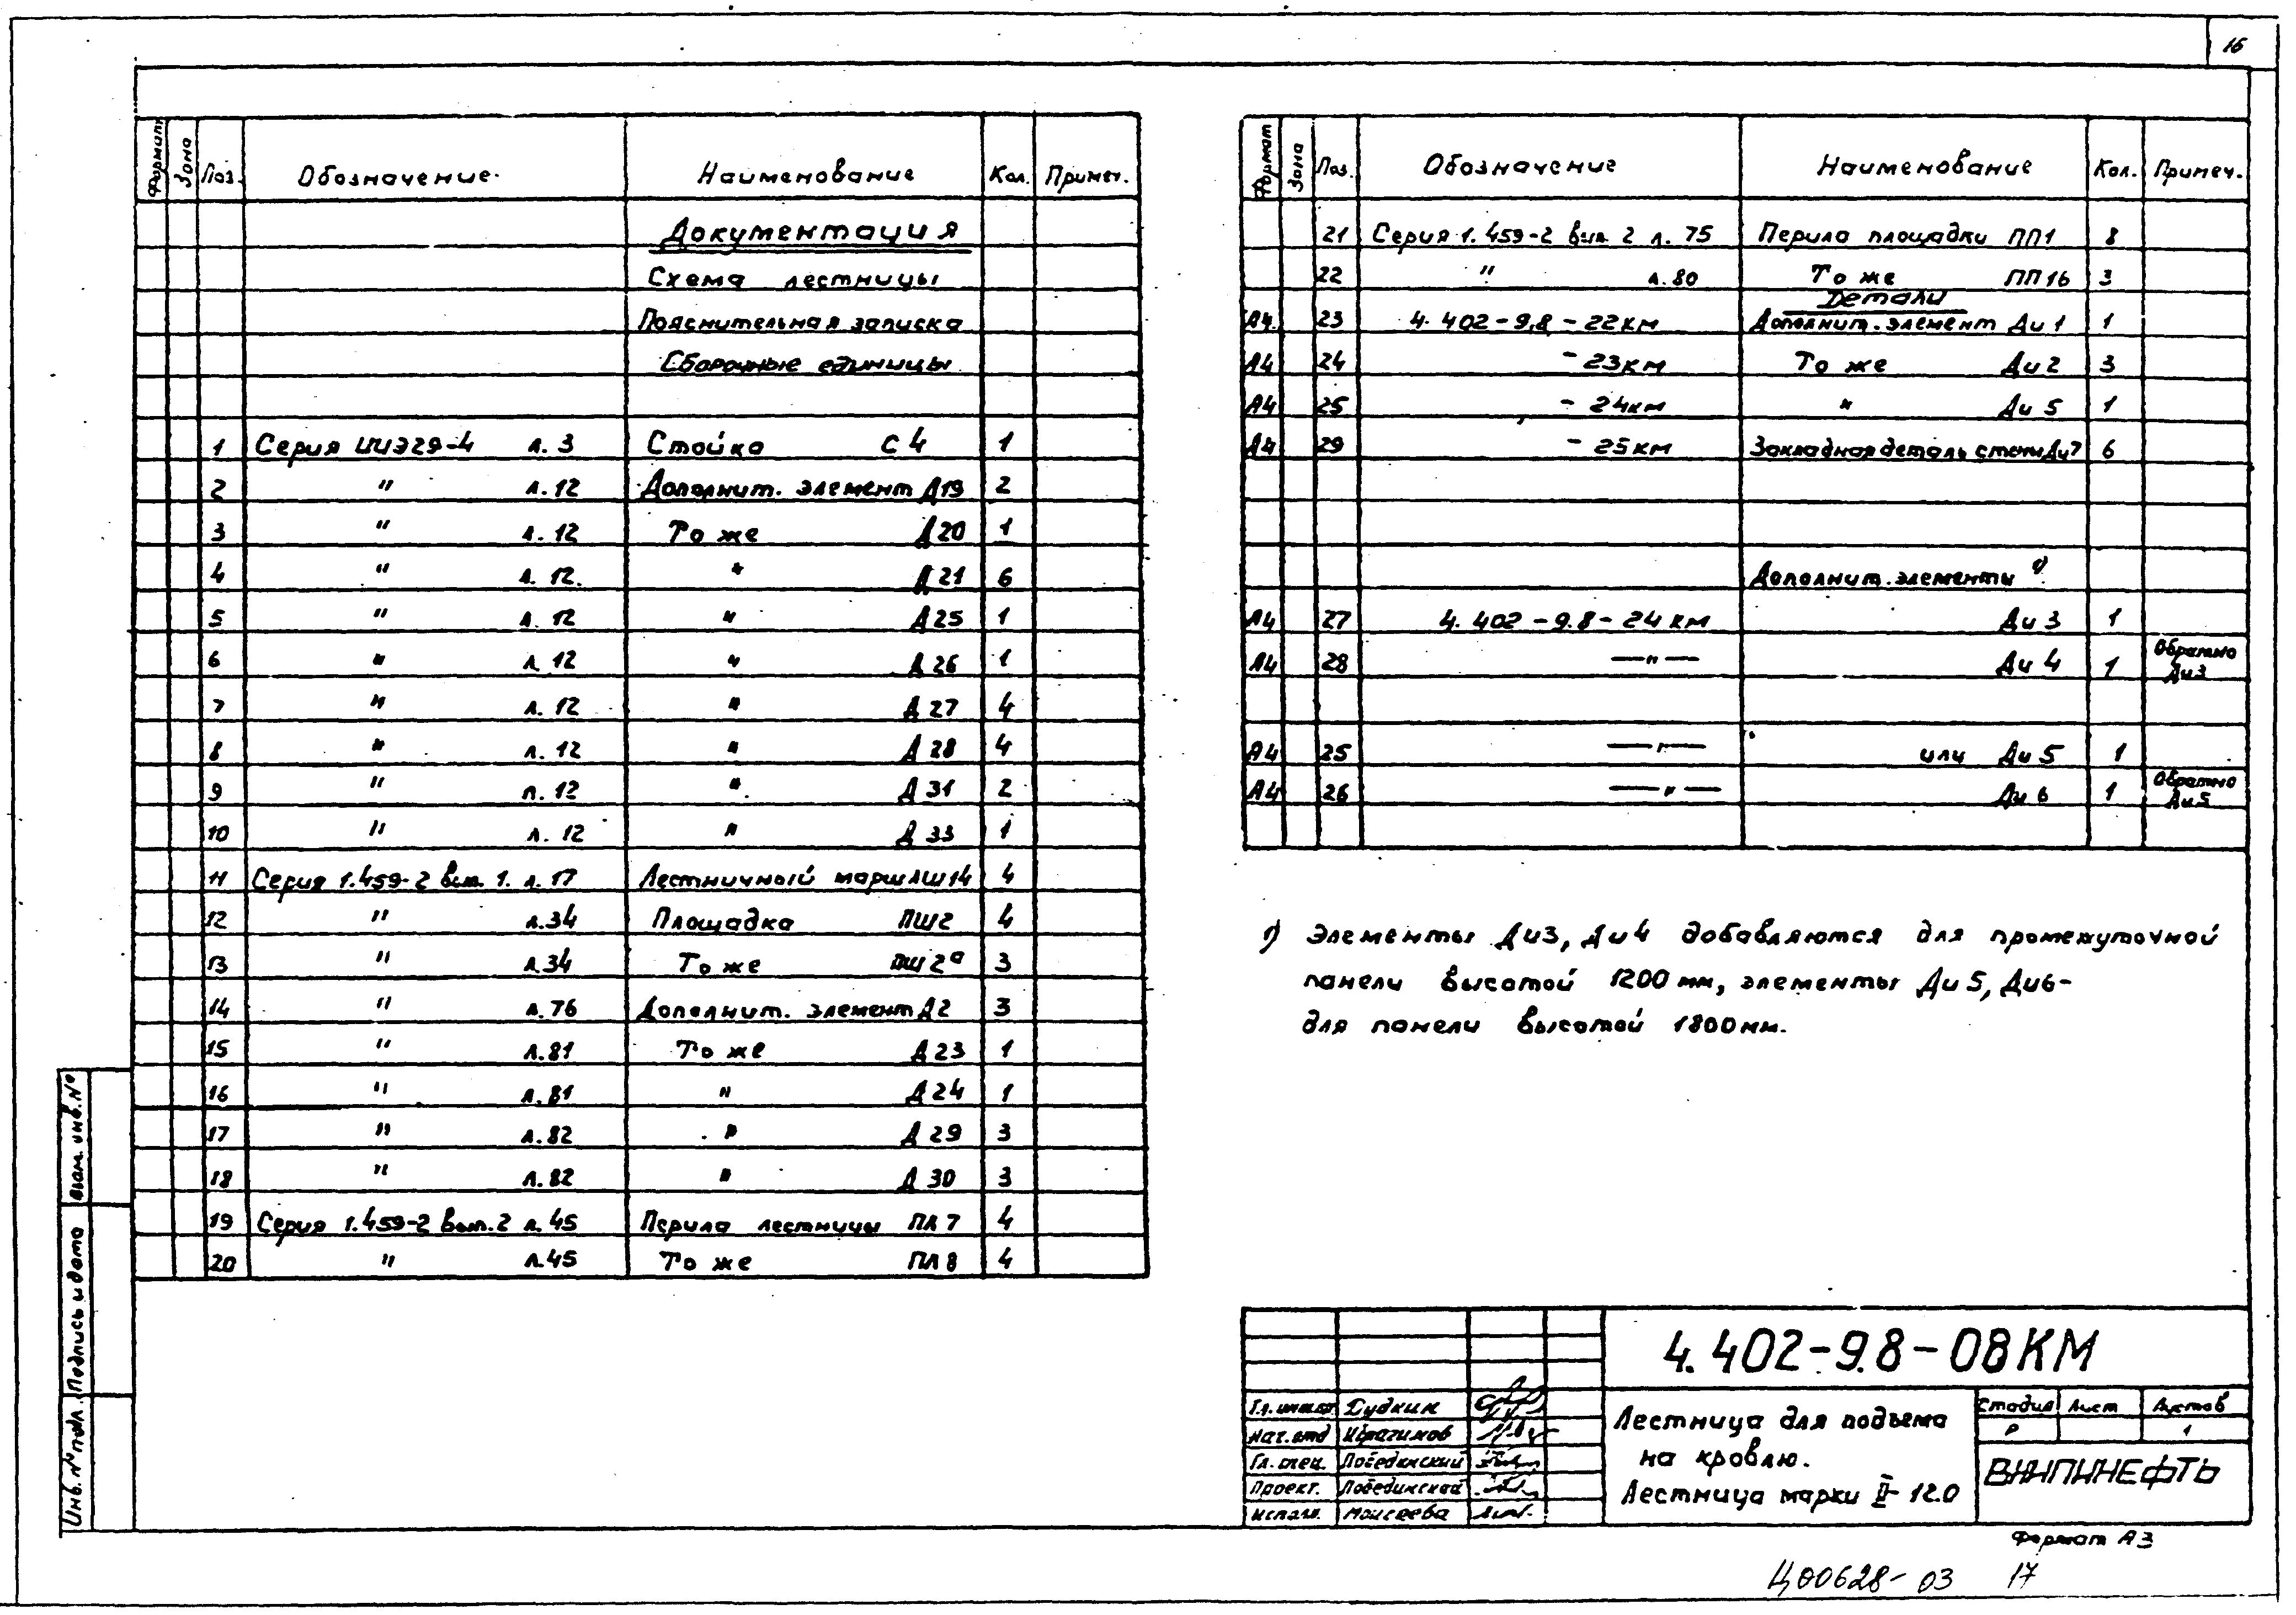 16
Формат Зона Поз. Обозначение Наименование Кол. Примеч.
Документация
Схема лестницы
Пояснительная записка
Сборочные единицы
1 Серия ИИЭ29-4 л. 3 Стойка С4 1
2 " л. 12 Дополнит. элемент Д19 2
3 " л. 12 То же Д20 1
4 " л. 12. " Д21 6
5 " л. 12 " Д25 1
6 " л 12 " Д26 1
7 " л. 12 " Д27 4
8 " л. 12 " Д28 4
9 " л. 12 " Д31 2
10 " л. 12 " Д33 1
11 Серия 1.459-2 вып. 1. л. 17 Лестничный марш ЛШ14 4
12 " л.34 Площадка ПШ2 4
13 " л.34 То же ПШ2а 3
14 " л.76 Дополнит. элемент Д2 3
15 " л.81 То же Д23 1
16 " л.81 " Д24 1
17 " л.82 " Д29 3
18 " л.82 " Д30 3
19 Серия 1.459-2 вып.2 л.45 Перила лестницы ПЛ7 4
20 " л.45 То же ПЛ8 4
Формат Зона Поз. Обозначение Наименование Кол. Примеч.
21 Серия 1.459-2 вып. 2 л. 75 Перила площадки ПП1 8
22 " л.80 То же ПП16 3
Детали
А4 23 4.402-9.8-22КМ Дополнит. элемент Ди1 1
А4 24 -23КМ То же Ди2 3
А4 25 -24КМ " Ди5 1
А4 29 -25КМ Закладная деталь стены Ди7 6
Дополнит. элементы 1)
А4 27 4.402-9.8-24КМ Ди3 1
А4 28 —"— Ди4 1 Обратно Ди3
А4 25 —"— или Ди5 1
А4 26 —"— Ди6 1 Обратно Ди5
1) Элементы Ди3, Ди4 добавляются для промежуточной
панели высотой 1200 мм, элементы Ди5, Ди6-
для панели высотой 1800мм.
Взам. инв. №
Подпись и дата
Инв. № подл.
4.402-9.8-08КМ
Гл. инж. пр Дудкин
Нач. отд Ибрагимов
Гл. спец. Лобединский
Проект. Лобединский
Исполн. Моисеева
Лестница для подъема
на кровлю.
Лестница марки II-12.0
Стадия Лист Листов
Р 1
ВНИПИНЕФТЬ
Формат А3
Ц00628-03 17